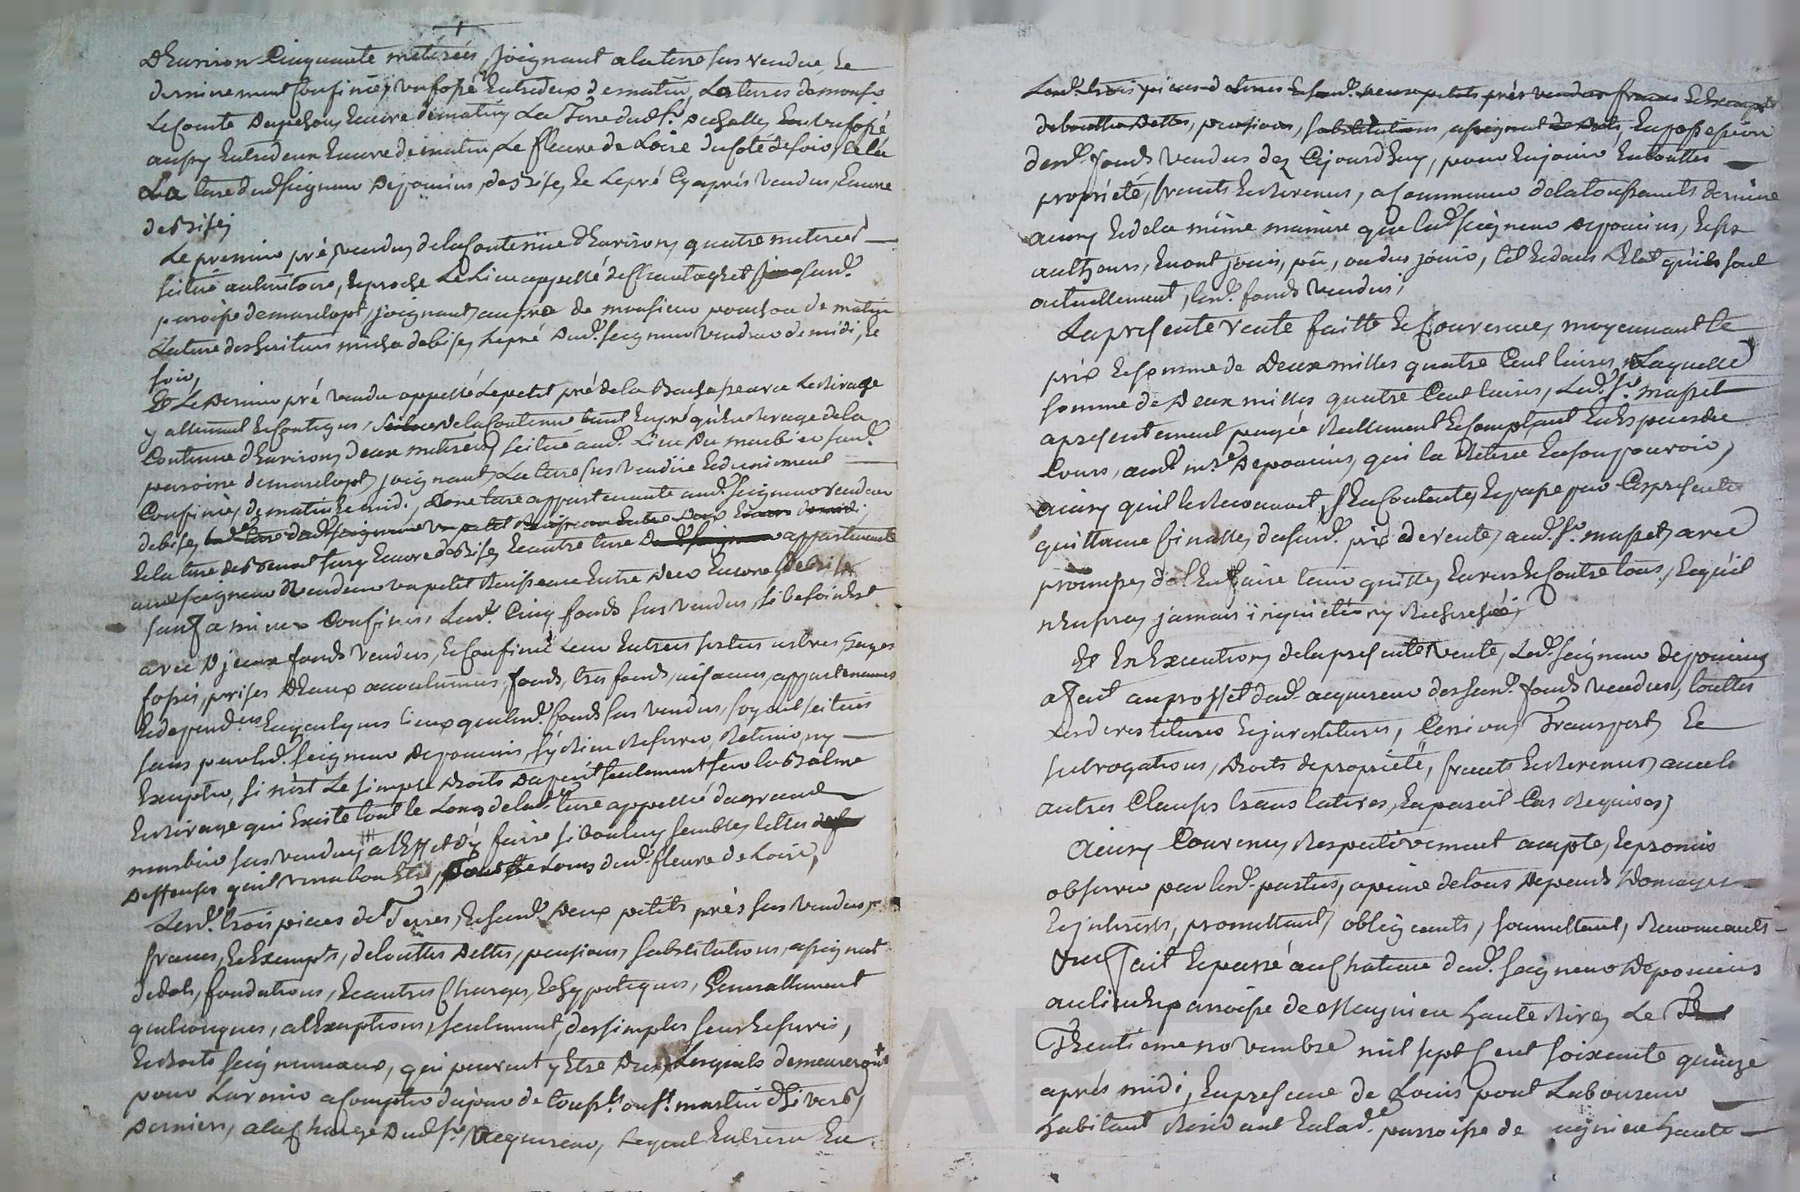 D'Environ Cinquante metérées, joignant a la terre sus vendue, et
dernierement Confinée, un fossé Entredeux de matin, La terres de mons.r
Le Comte Encore de matin, La Terre dud. S.r Entre fossé
aussy Entredeux Encore de matin, Le fleuve de Loire du coté de soir, Et la
La terre dud. Seigneur Depomins, de Bise, Et Le pré Cy aprés Vendu, Encore
de Bise,
Le premier pré vendu, de la Contenüe d'Environ quatre meterées
scitué au territoire, Et proche Le Lieu appellé de susd.
paroisse de marclopt, joignant au pré de monsieur de matin
La terre des heritiers de bise, Le pré Dud. Seigneur Vendeur de midi, Et
soir,
Et Le Dernier pré Vendu appellé Le petit pré de la Et Le Rivage
y attenant Et Contigus, de la Contenue tant En pré qu'En Rivage de la
Contenue d'Environ deux metérées, scitué aud. Lieu Du susd.
paroisse de marclopt, joignant La terre sus vendüe Et dernierement
Confinée, de matin Et midi, Une terre appartenante aud. Seigneur vendeur
de bise,
Et la terre Encore de Bise, Et autre terre appartenante
aud. Seigneur Vendeur un petit Ruisseau Entre Deux Encore de Bise
sauf a mieux Confiner, Lesd. Cinq fonds sus vendus, si besoin Est
avec D'iceux fonds Vendus, Et Confinés Leur Entrées sorties arbres, hayes
fossés, prises D'Eaux accoutumées, fonds, tres fonds, aisances, appartenances
Et dépend.ces En quelques Lieux que lesd. fonds sus vendus, soyent scitués
sans par led. Seigneur Depomins, s'y Rien Reserver, Retenir, ny
Excepter, si n'est Le simple Droits seulement sur la Balme
Et Rivage qui Existe tout le Long de lad. terre appellée du grand
sus vendue, a l'Effet d'y faire si bon luy semble, telles
Deffenses qu'il verra bon Etre, Le Long dud. fleuve de Loire,
Lesd. trois pieces de Terres, Et susd. Deux petits prés sus vendus,
francs, Et Exempts, de touttes Dettes, pensions, substitutions, assignat
de dots, fondations, Et autres Charges, Et hypoteques, Generallement
quelconques, a l'Exception, seulement, des simples
Et Droits seigneuriaux, qui peuvent y Etre Dus, Lesquels demeureront
pour L'avenir a Compter du jour de de S.t martin d'hiverd,
Derniers, a la Charge Dud. S.r Acquereur, Lequel Entrera En
Lesd. trois pieces de terres Et susd. deux petits prés vendus francs Et Exempts
de touttes Dettes, pensions, substitutions, assignat de Dots, En possession
desd. fonds vendus dez Cejourd'huy, pour En jouir En touttes
propriété, fruits Et Revenus, a Commencer de la toussaints derniere
ainsy Et de la même maniere que led. Seigneur Depomins, Et ses
autheurs, En ont joüis, pû, ou dus joüir, tel Et dans L'Etat qu'ils sont
actuellement, lesd. fonds Vendus;
La presente vente faitte Et Convenue, moyennant Le
prix Et somme de Deux milles quatre Cent livres, Laquelle
somme de Deux milles quatre Cent livres, Led. S.r masset
a presentement payée Reellement Et Comptant En Especes de
Cours, aud. m.re Depomins, qui la Retirée En son pouvoir,
ainsy qu'il le Reconnut, s'En Contente, Et passe par Ces presentes
quittance finalle, du susd. prix de vente, aud. S.r masset, avec
promesse, de l'En faire tenir quitte, Envers Et Contre tous, Et qu'il
n'En sera jamais inquietté ny Recherché;
Et En Execution, de la presente Vente, Led. Seigneur depomins
a fait au proffit dud. acquereur des susd. fonds Vendus, touttes
Les devestitures Et investitures, Cession, Transport, Et
subrogations, Droits de proprieté, fruits Et Revenus, avec les
autres Clauses translatives, En pareil Cas Requises;
Ainsy Convenu, Respectivement accepté, Et promis
observer par lesd. parties, a peine de tous Depends Domages
Et interets, promettant, obligeants, soumettant, Renonceants
Fait Et passé au Chateau dud. Seigneur Depomins
au lieu Et paroisse de Magnieu haute Rive, Le
Trentieme novembre mil sept Cent soixante quinze
aprés midi, En presence de Louis pont Laboureur
habitant Residant En lad. parroisse de haute